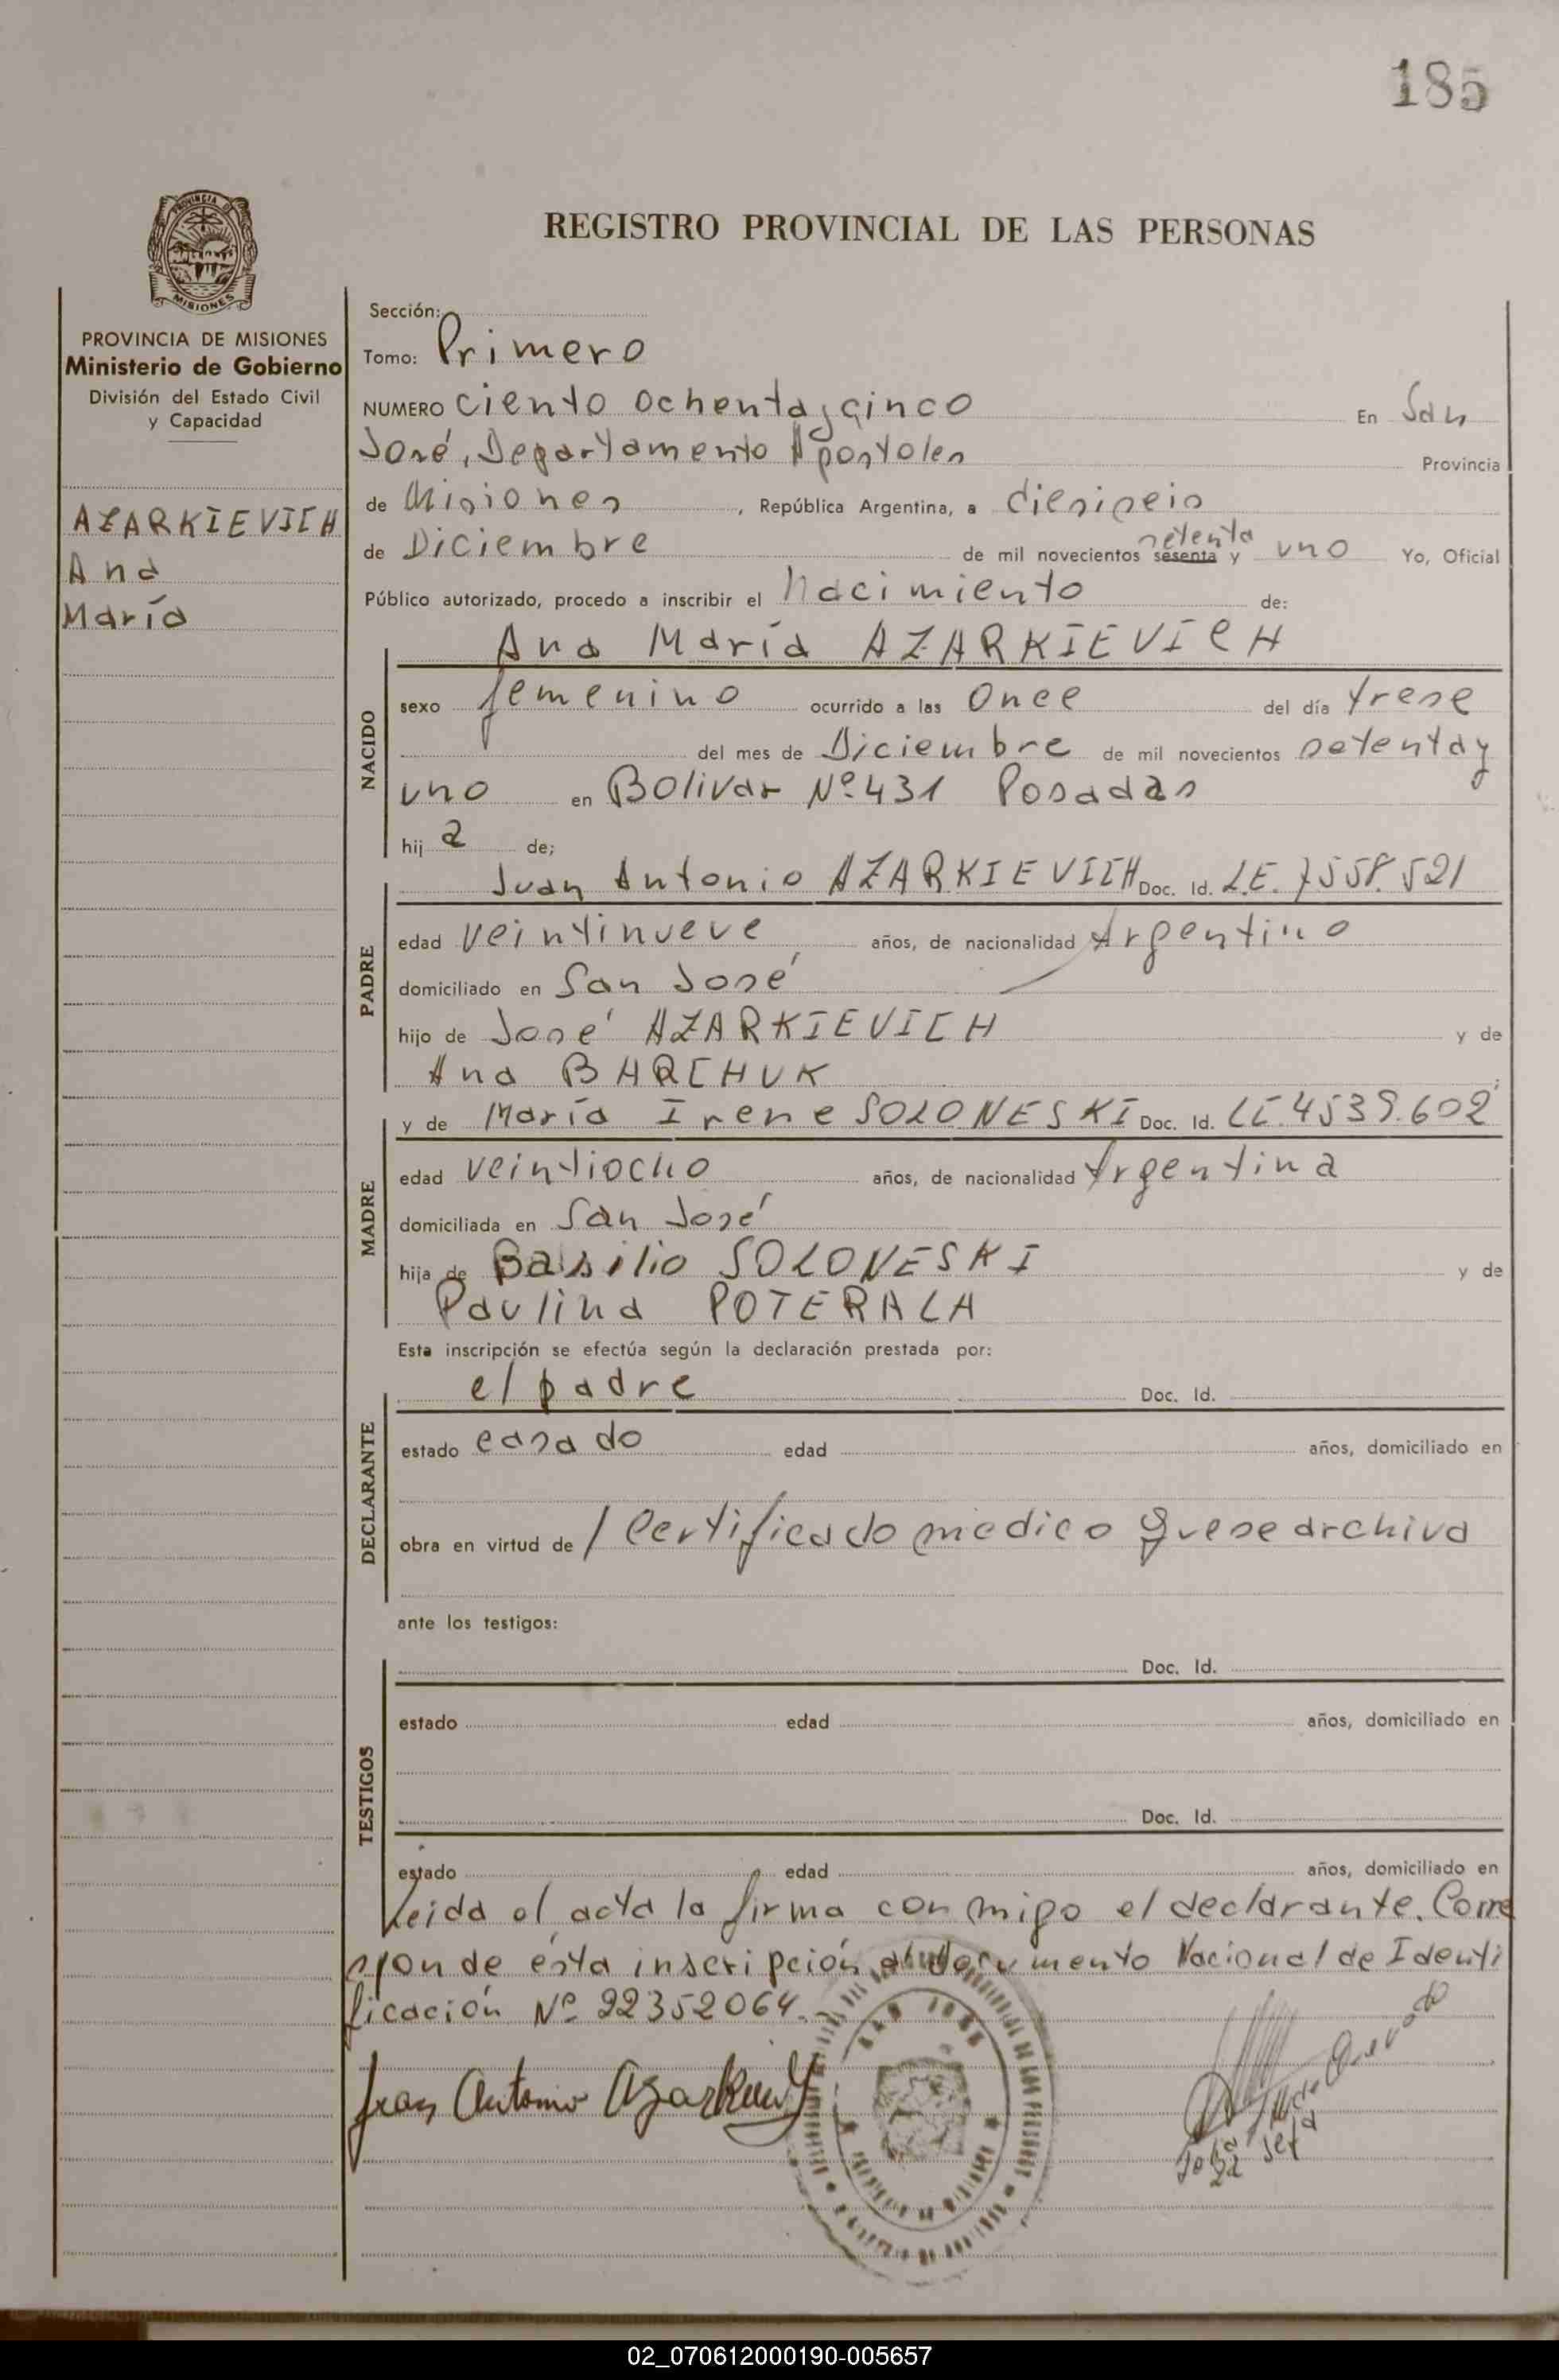 185
PROVINCIA DE
MISIONES
REGISTRO PROVINCIAL DE LAS PERSONAS
PROVINCIA DE MISIONES
Ministerio de Gobierno
División del Estado Civil
y Capacidad
AZARKIEVICH
Ana
María
Sección:
Tomo: Primero
NUMERO ciento ochenta y cinco En San
José, Departamento Apostoles Provincia
de Misiones, República Argentina, a diesiseis
de Diciembre de mil novecientos sesenta setenta y uno Yo, Oficial
Público autorizado, procedo a inscribir el nacimiento de:
NACIDO
Ana María AZARKIEVICH
sexo femenino ocurrido a las Once del día trese
del mes de Diciembre de mil novecientos setenta y
uno en Bolivar Nº 431 Posadas
hij a de;
PADRE
Juan Antonio AZARKIEVICH Doc. Id. L.E. 7558.521
edad veintinueve años, de nacionalidad Argentino
domiciliado en San José
hijo de José AZARKIEVICH y de
Ana BARCHUK
MADRE
y de María Irene SOLONESKI Doc. Id. LC 4539.602
edad veintiocho años, de nacionalidad Argentina
domiciliada en San José
hija de Basilio SOLONESKI y de
Paulina POTERALA
Esta inscripción se efectúa según la declaración prestada por:
DECLARANTE
el padre Doc. Id.
estado casado edad años, domiciliado en
obra en virtud de / Certificado medico que se archiva
ante los testigos:
TESTIGOS
Doc. Id.
estado edad años, domiciliado en
Doc. Id.
estado edad años, domiciliado en
Leida el acta la firma con migo el declarante. Corre
sponde ésta inscripción al documento Nacional de Identi
ficación Nº 22352064.
Juan Antonio Azarkievich
Jefa
02_070612000190-005657